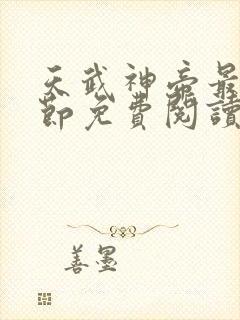 天武神帝最
節免費閱讀
善墨